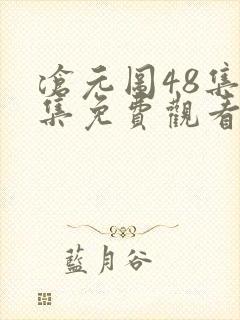 滄元圖48集
集免費觀看
藍月谷